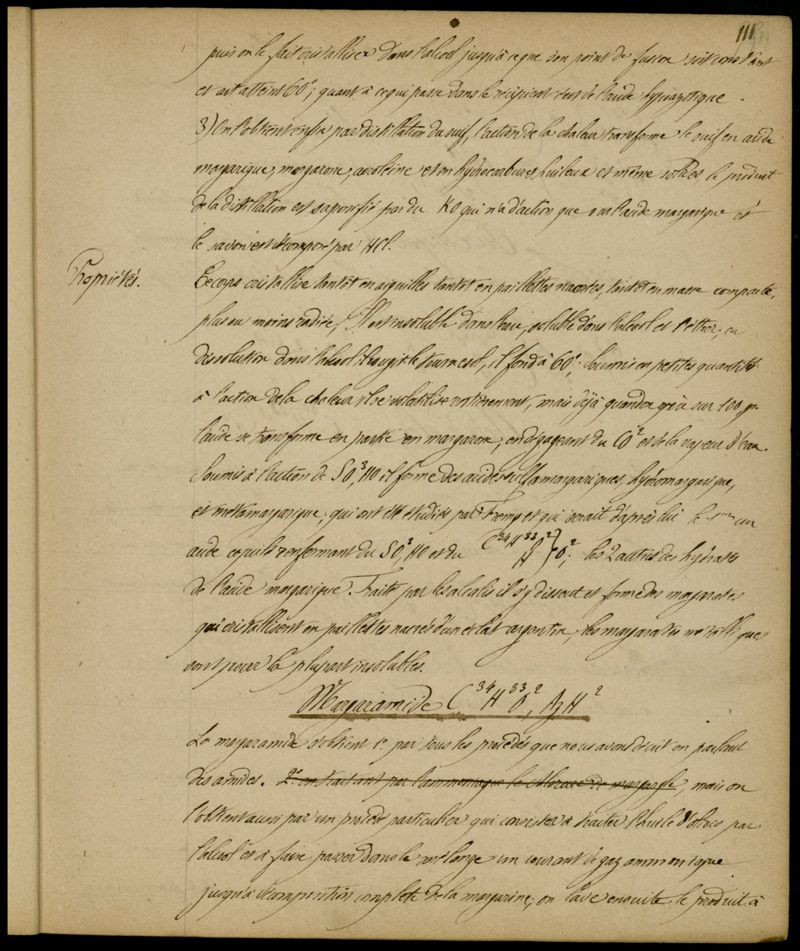 111
puis on le fait cristalliser dans l'alcool jusqu'à ce que son point de fusion soit constant
et ait atteint 60°; quant à ce qui passe dans le récipient c'est de l'acide
3) On l'obtient enfin par distillation du suif, l'action de la chaleur transforme le suif en acide
margarique, margarone, acroléine et en hydrocarbures huileux et même solides le produit
de la distillation est saponifié par du KO qui n'a d'action que sur l'acide margarique et
le savon est décomposé par HCl.
Propriétés.
Ce corps cristallise tantôt en aiguilles tantôt en paillettes nacrées, tantôt en masse compacte,
plus ou moins radiée, Il est insoluble dans l'eau, soluble dans l'alcool et l'éther; en
dissolution dans l'alcool il rougit le tournesol, il fond à 60°; Soumis en petites quantités
à l'action de la chaleur il se volatilise entièrement, mais déjà quand on opère sur 100 gr
l'acide se transforme en partie en margarone, en dégageant du CO² et de la vapeur d'eau.
Soumis à l'action de SO³,HO il forme des acides sulfomargariques, hydromargarique,
et métamargarique, qui ont été étudiés par Fremy et qui serait d'après lui le 1er un
acide copulé renfermant du SO³,HO et du C³⁴H³³O²/H}O²; les 2 autres des hydrates
de l'acide margarique. Traité par les alcalis il s'y dissout et forme des margarates
qui cristallisent en paillettes nacrés d'un éclat argentin, les margarates métalliques
sont pour la plupart insolubles.
Margaramide C³⁴H³³O², AzH²
La margaramide s'obtient 1° par tous les procédés que nous avons décrit en parlant
des amides. 2° en traitant par l'ammoniaque le chlorure de margaryle, mais on
l'obtient aussi par un procédé particulier qui consiste à traiter l'huile d'olives par
l'alcool et à faire passer dans le mélange un courant de gaz ammoniaque
jusqu'à décomposition complète de la margarine; on lave ensuite le produit à